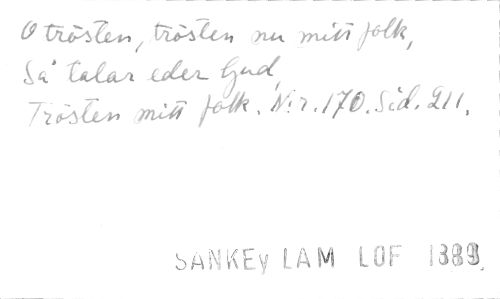 O trösten, trösten nu mitt folk,
Så talar eder Gud,
Trösten mitt folk. N:r. 170. Sid. 211.
SANKEY LAM LOF 1889.